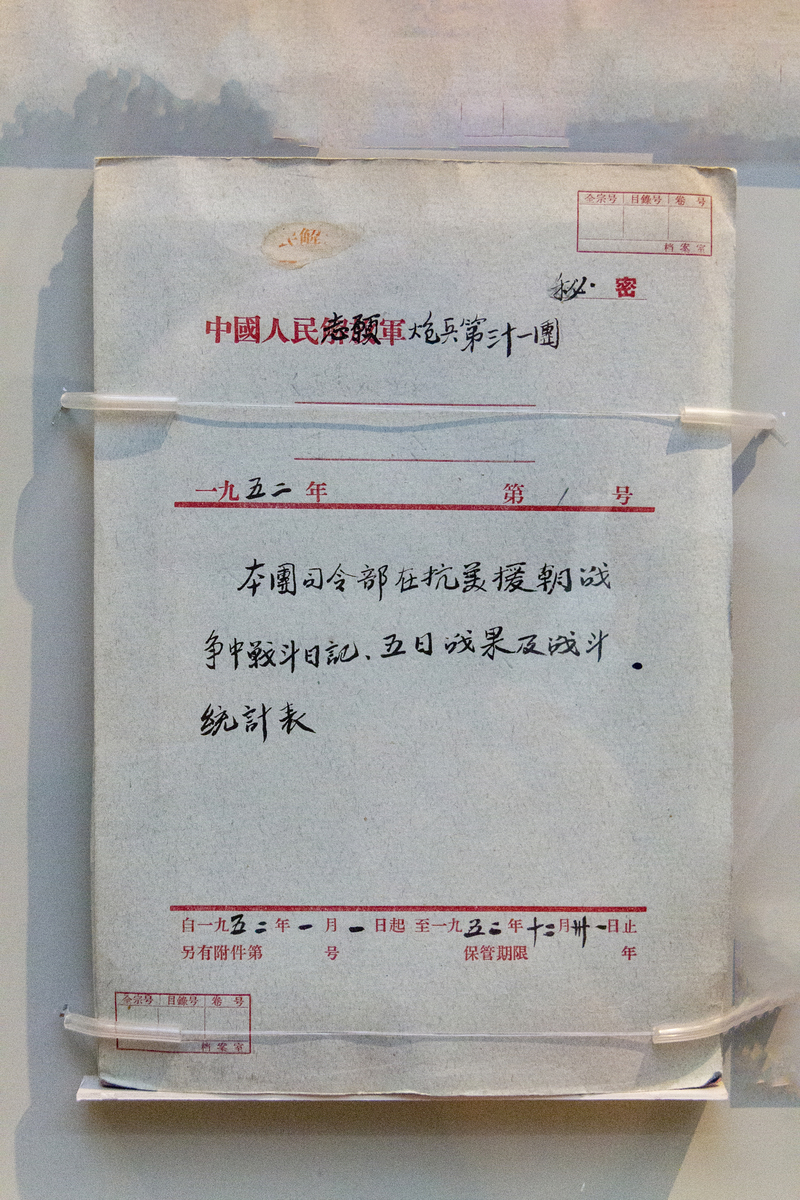 全宗号 目錄号 卷 号
档 案 室
解
秘密
中國人民志願軍炮兵第三十一團
一九五二年 第 1 号
本團司令部在抗美援朝战
争中戰斗日記、五日战果及战斗
統計表
自一九五二年一月一日起 至一九五二年十二月卅一日止
另有附件第 号 保管期限 年
全宗号 目錄号 卷 号
档 案 室